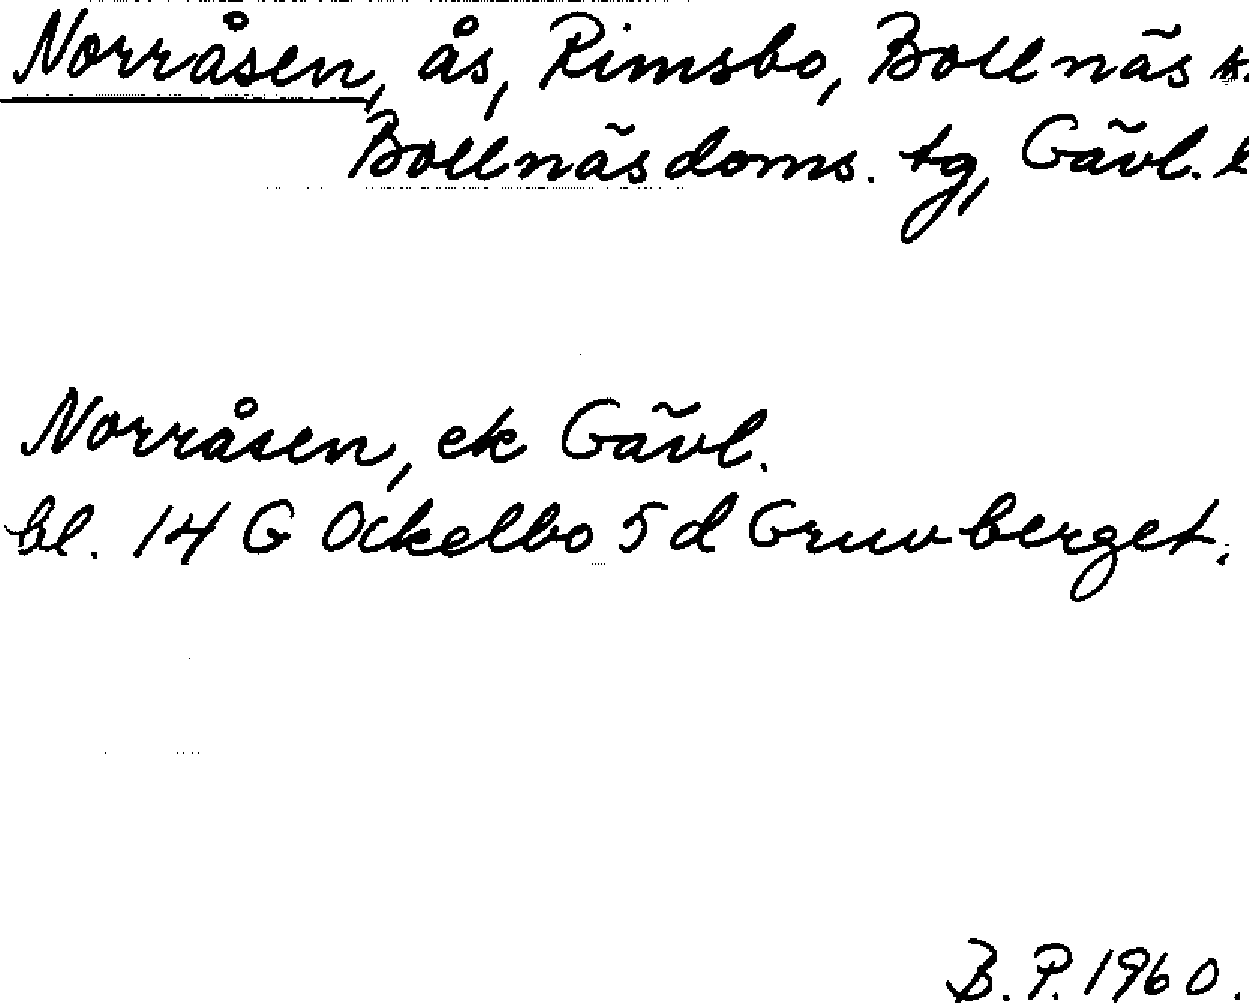 Norråsen, ås, Rimsbo, Bollnäs s.
Bollnäs doms. tg, Gävl. l
Norråsen, ek Gävl.
bl. 14 G Ockelbo 5 d Gruvberget.
B. P. 1960.